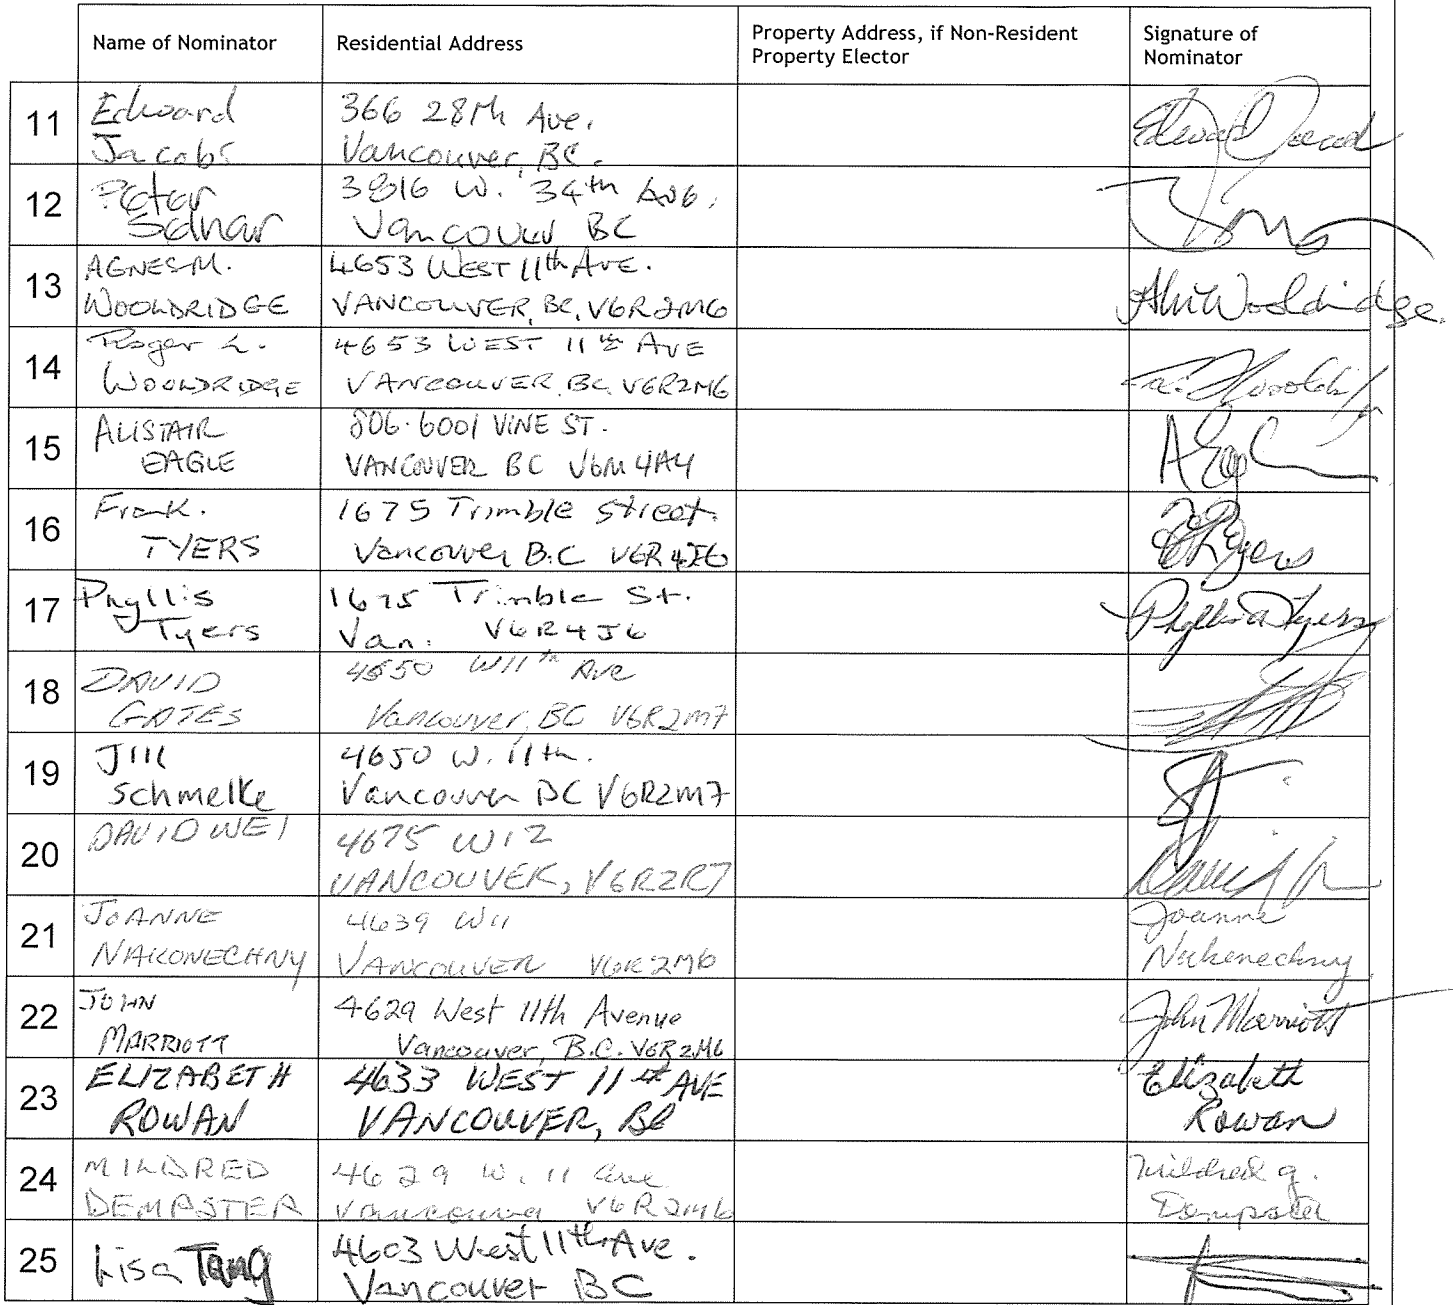 Name of Nominator
Residential Address
Property Address, if Non-Resident
Property Elector
Signature of
Nominator
11
Edward
Jacobs
366 28th Ave.
Vancouver, BC.
Edward Jacob
12
Peter
Selnar
3816 W. 34th Ave.
Vancouver BC
13
AGNES M.
WOOLDRIDGE
4653 WEST 11th AVE.
VANCOUVER, BC, V6R 2M6
AM Wooldridge.
14
Roger L.
WOOLDRIDGE
4653 WEST 11th AVE
VANCOUVER BC V6R2M6
15
ALISTAIR
EAGLE
806-6001 VINE ST.
VANCOUVER BC V6M 4A4
16
Frank.
TYERS
1675 Trimble Street.
Vancouver B.C V6R 4J6
17
Phyllis
Tyers
1675 Trimble St.
Van. V6R4J6
Phyllis Tyers
18
DAVID
GATES
4650 W11th Ave
Vancouver, BC V6R2M7
19
Jill
Schmelke
4650 W. 11th.
Vancouver BC V6R2M7
20
DAVID WEI
4675 W12
VANCOUVER, V6R2R7
21
JOANNE
NAKONECHNY
4639 W11
VANCOUVER V6R2M6
Joanne
Nakonechny
22
JOHN
MARRIOTT
4629 West 11th Avenue
Vancouver, B.C. V6R2M6
John Marriott
23
ELIZABETH
ROWAN
4633 WEST 11th AVE
VANCOUVER, BC
Elizabeth
Rowan
24
MILDRED
DEMPSTER
4629 W. 11 Ave
Vancouver V6R2M6
Mildred G.
Dempster
25
Lisa Tang
4603 West 11th Ave.
Vancouver BC